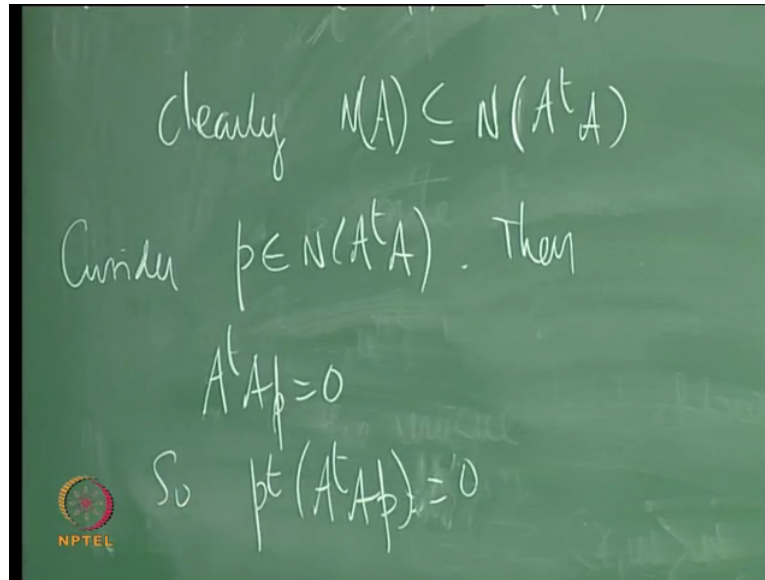 Clearly N(A) ⊆ N(AᵗA)
Consider p ∈ N(AᵗA). Then
AᵗAp = 0
So pᵗ(AᵗAp) = 0
NPTEL